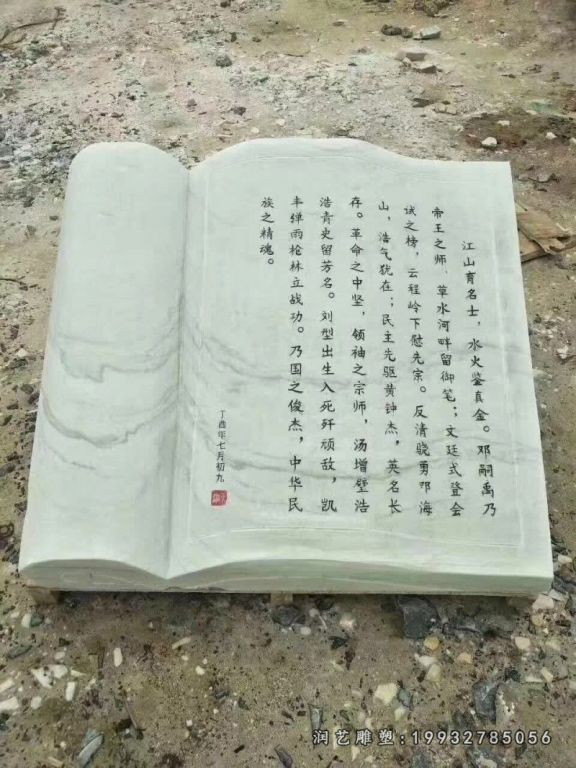 江山育名士，水火鉴真金。邓嗣禹乃
帝王之师，草水河畔留御笔；文廷式登会
试之榜，云程岭下慰先宗。反清骁勇邓海
山，浩气犹在；民主先驱黄钟杰，英名长
存。革命之中坚，领袖之宗师，汤增璧浩
浩青史留芳名。刘型出生入死歼顽敌，凯
丰弹雨枪林立战功。乃国之俊杰，中华民
族之精魂。
丁酉年七月初九
润艺雕塑:19932785056